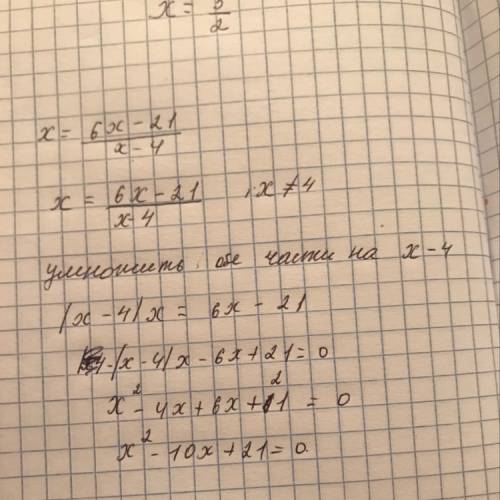 x = 5/2
x = (6x - 21)/(x - 4)
x = (6x - 21)/(x - 4) , x ≠ 4
умножить обе части на x - 4
(x - 4)x = 6x - 21
(x - 4)x - 6x + 21 = 0
x² - 4x + 6x + 21 = 0
x² - 10x + 21 = 0